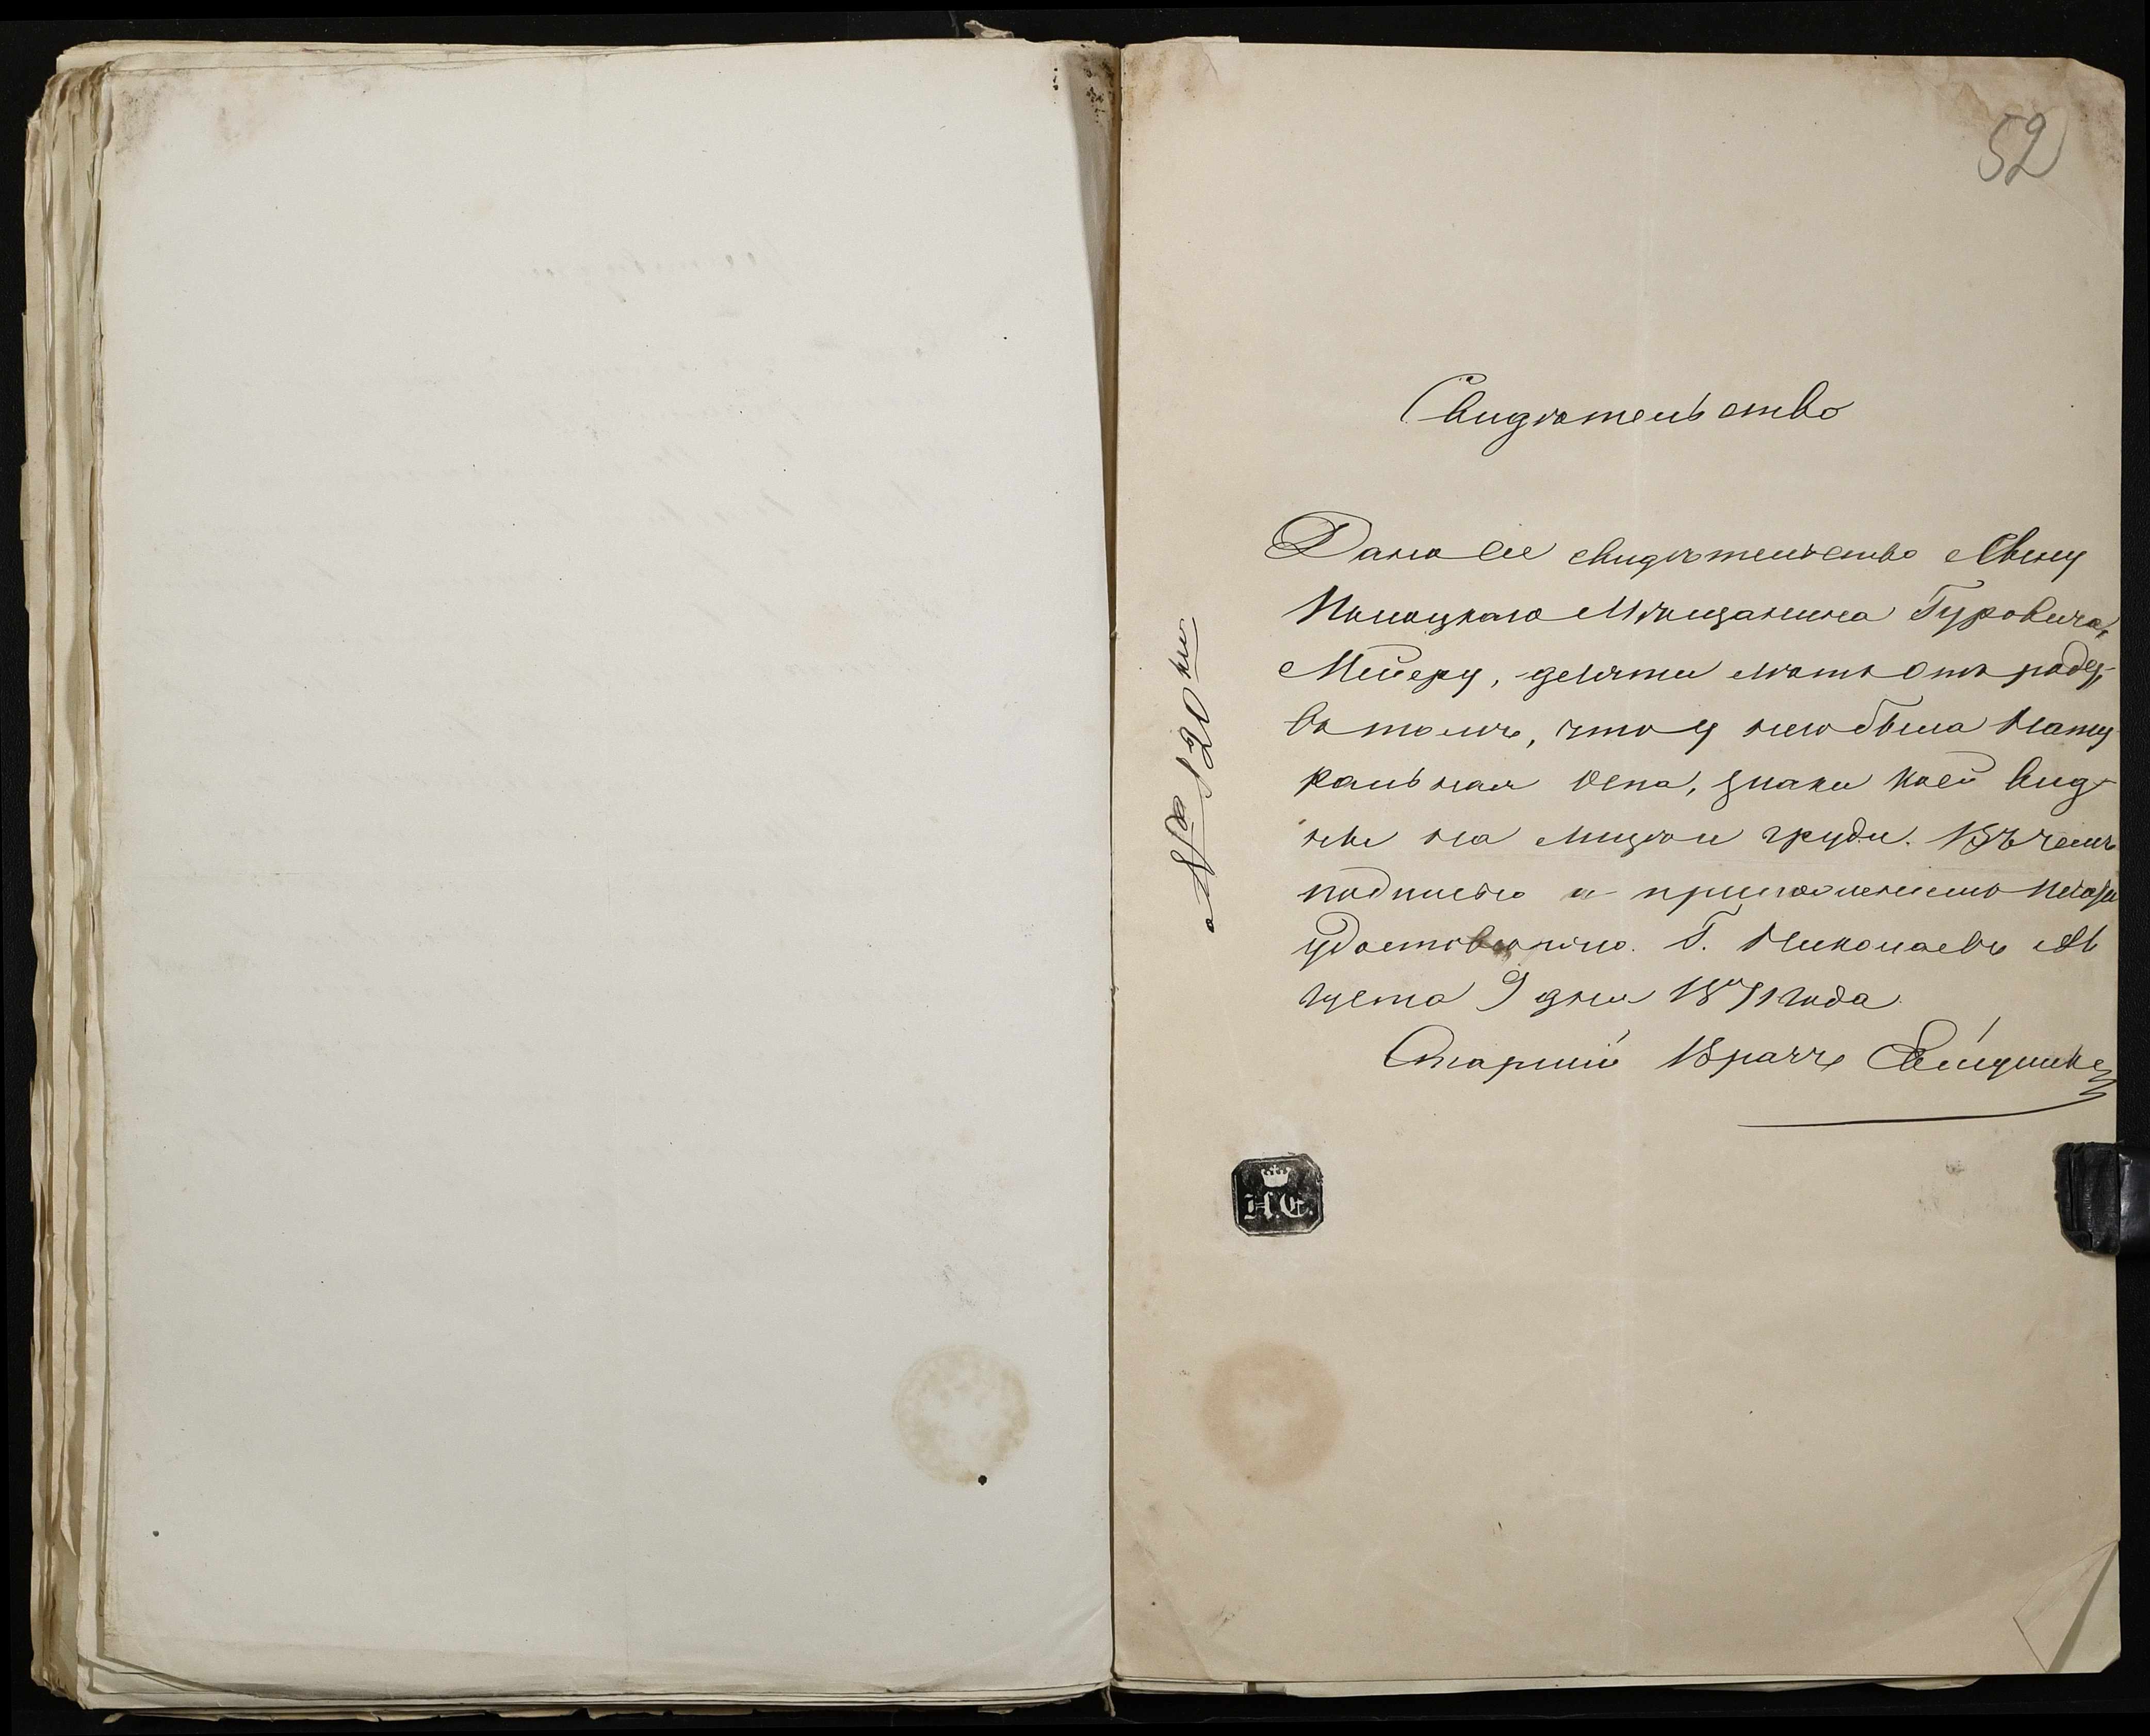 52
Свидѣтельство
Дано сіе свидѣтельство Сыну
Полоцкаго Мѣщанина Гуровича,
Мейеру, девяти лѣтъ отъ роду,
въ томъ, что у него была Нату
ральная Оспа, знаки коей вид-
ны на лицѣ и груди. Въ чемъ
подписью и приложеніемъ печати
удостовѣряю. Г. Николаевъ Ав
густа 9 дня 1871 года.
Старшій Врачъ
Н.С.